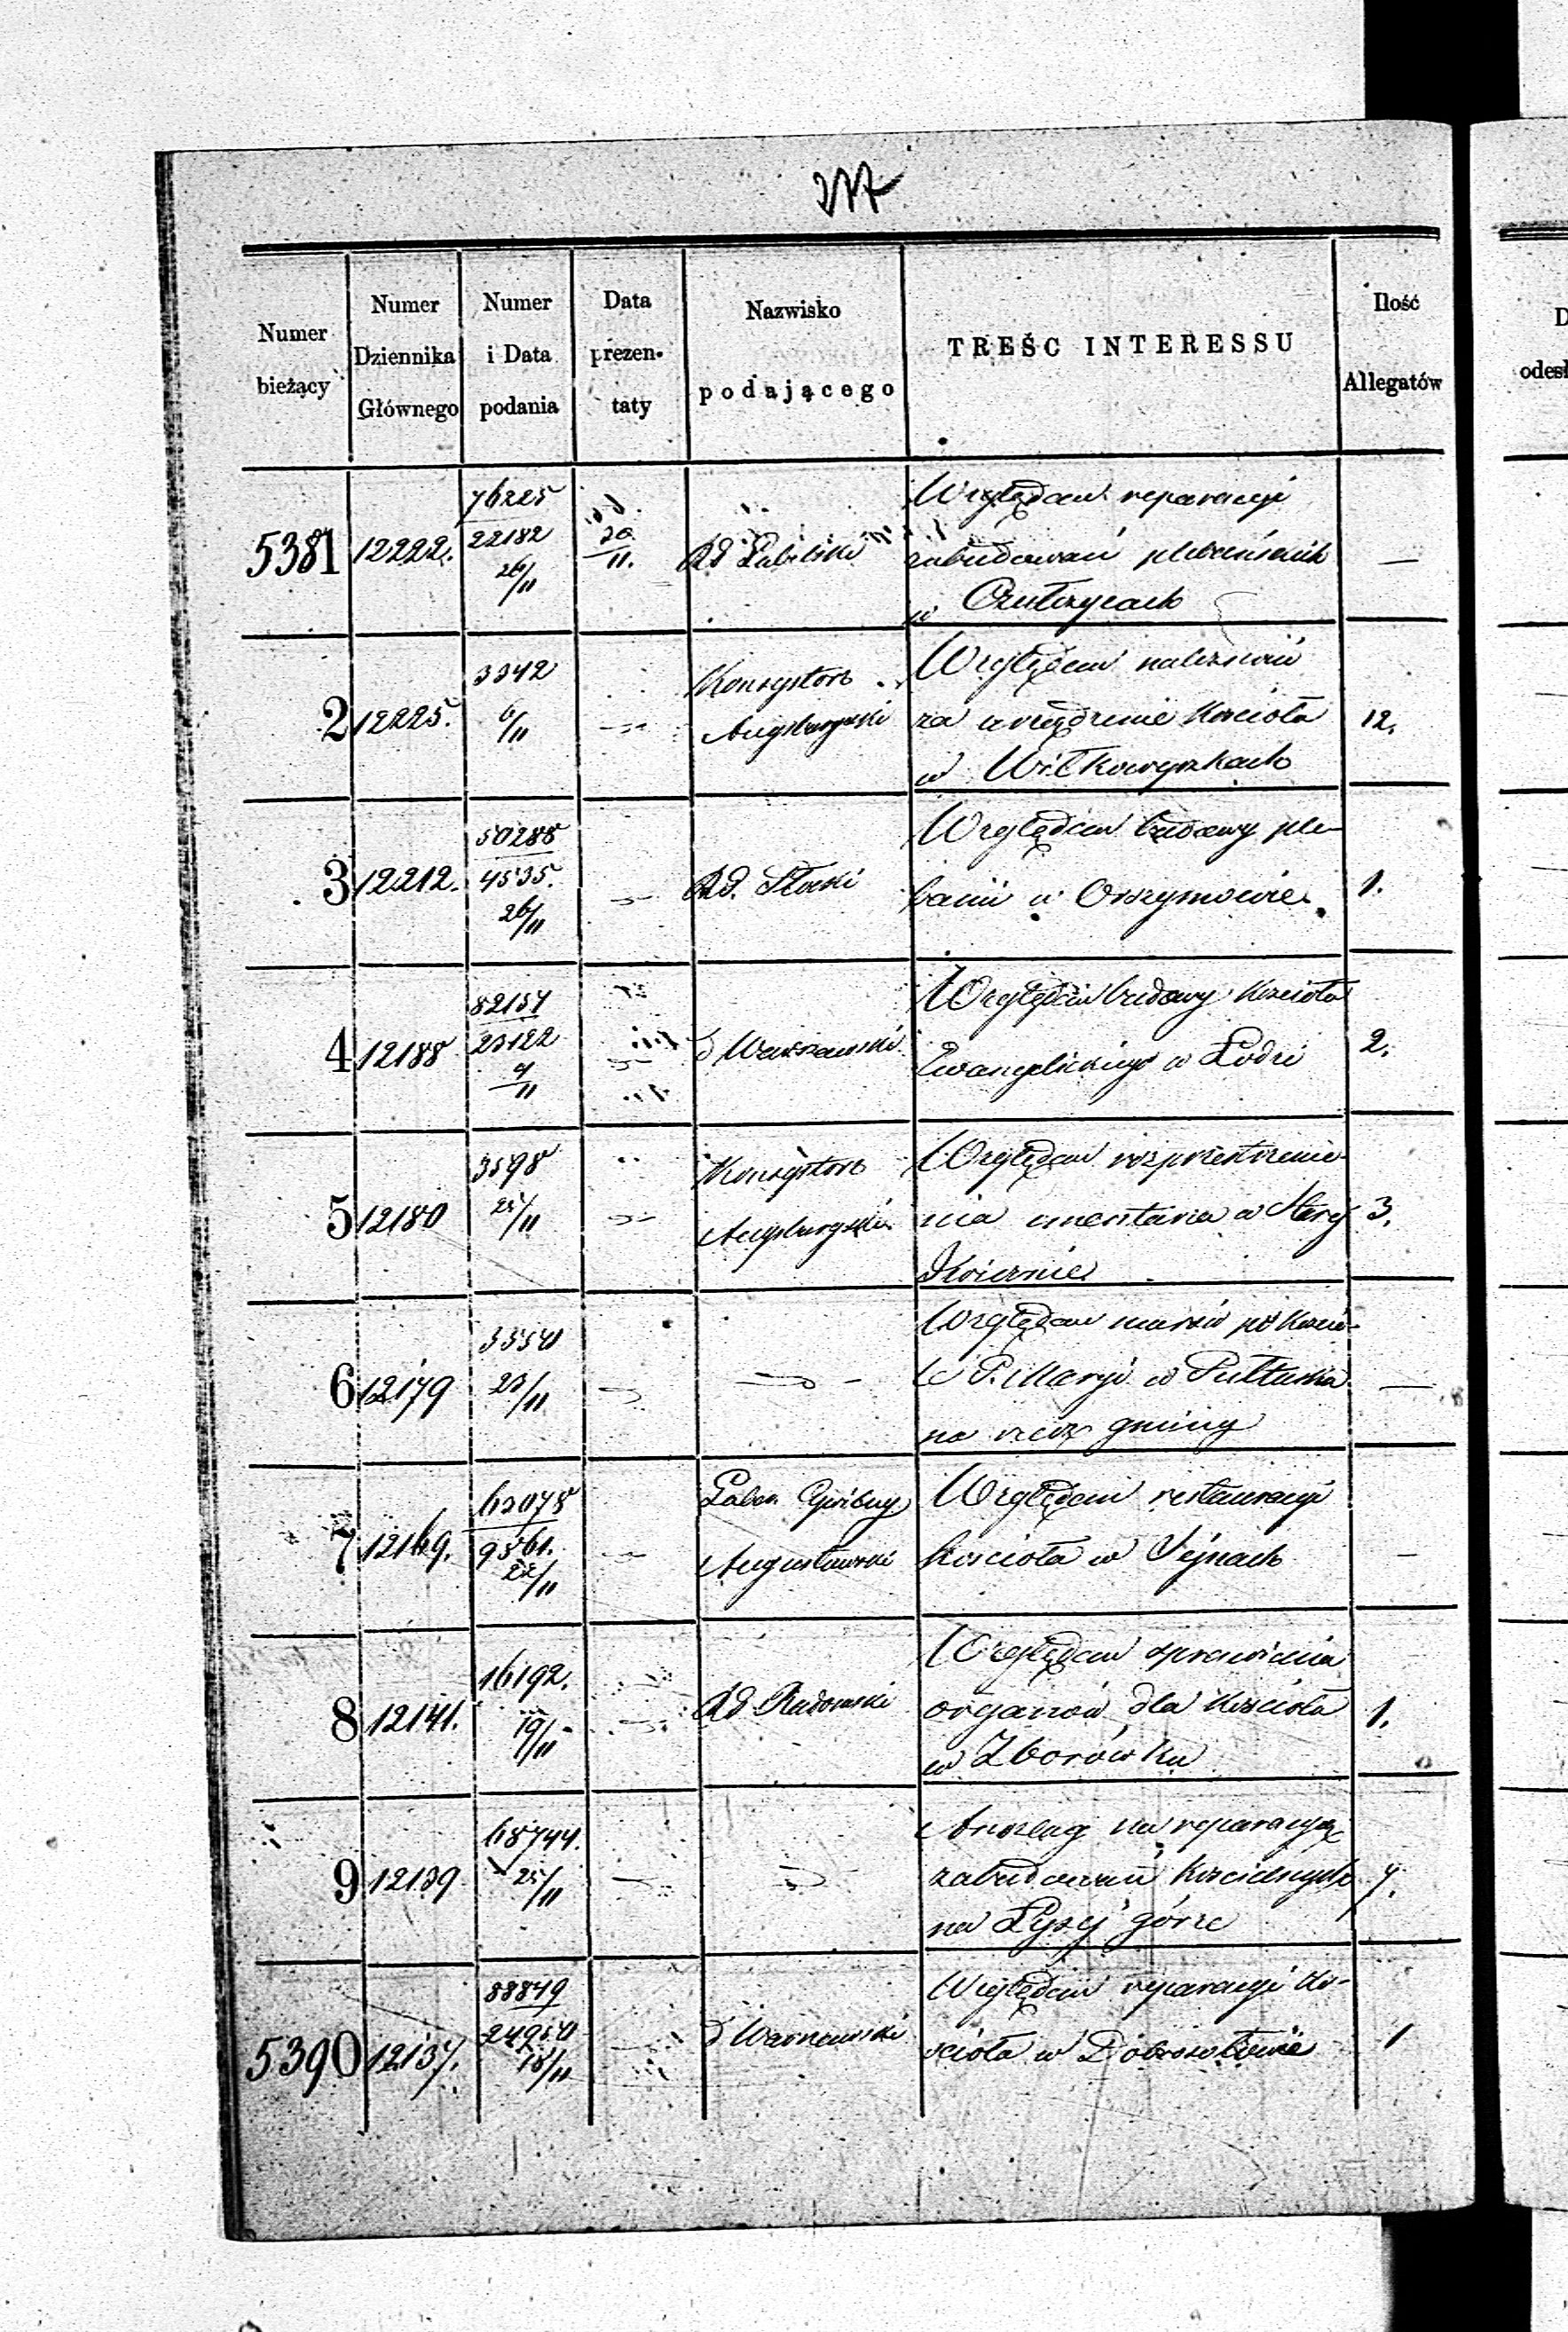 277
Numer bieżący
Numer Dziennika Głównego
Numer i Data podania
Data prezen- taty
Nazwisko podającego
TREŚC INTERESSU
Ilość Allegatów
5381 12222. 76225 22182 26/11 30/11. Rd Lubelski
Względem reparacyi
zabudowań plebańskich
w Czułczycach
—
2 12225. 3342 6/11
Konsystorz
Augsburgski
Względem należności
za urządzenie Kościoła
w Wiłkowyszkach
12.
3 12212. 50288 4535. 26/11 Rd. Płocki
Względem budowy ple-
banii w Orszymowie
1.
4 12188 82157 23122 9/11 d Warszawski
Względem budowy Kościoła
Ewangelickiego w Łodzi
2.
5 12180 3598 25/11
Konsystorz
Augsburgski
Względem rozprzestrzenie-
nia cmentarza w Starej
3.
6 12179 23/11
Względem murów po Kościo-
le P. Maryi w Pułtusku
na rzecz gminy
—
7 12169. 63078 9561. 22/11
Guber. Cywilny
Augustowski
Względem restauracyi
Kościoła w Sejnach
—
8 12141. 16192. 19/11 Rd Radomski
Względem sprawienia
organów dla Kościoła
w Zborówku
1.
9 12139 68744. 25/11
Anszlag na reparacyę
zabudowań Kościelnych
na Łysej górze
7.
5390 12137. 88849 24950 18/11 d Warszawski
Względem reparacyi Ko-
ścioła w Dobrosołowie
1
D
odesł